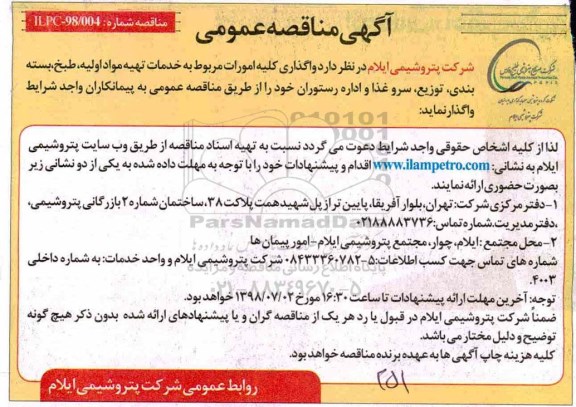 مناقصه شماره: ILPC-98/004
آگهی مناقصه عمومی
شرکت پتروشیمی ایلام در نظر دارد واگذاری کلیه امورات مربوط به خدمات تهیه مواد اولیه، طبخ، بسته
بندی، توزیع، سرو غذا و اداره رستوران خود را از طریق مناقصه عمومی به پیمانکاران واجد شرایط
واگذار نماید:
لذا از کلیه اشخاص حقوقی واجد شرایط دعوت می گردد نسبت به تهیه اسناد مناقصه از طریق وب سایت پتروشیمی
ایلام به نشانی: www.ilampetro.com اقدام و پیشنهادات خود را با توجه به مهلت داده شده به یکی از دو نشانی زیر
بصورت حضوری ارائه نمایند.
۱-دفتر مرکزی شرکت: تهران، بلوار آفریقا، پایین تر از پل شهید همت پلاکت ۳۸، ساختمان شماره ۲ بازرگانی پتروشیمی،
دفتر مدیریت. شماره تماس: ۰۲۱۸۸۸۸۳۷۳۶
۲-محل مجتمع: ایلام، چوار، مجتمع پتروشیمی ایلام-امور پیمان ها
شماره های تماس جهت کسب اطلاعات: ۵-۰۸۴۳۳۳۶۰۷۸۲ شرکت پتروشیمی ایلام و واحد خدمات: به شماره داخلی
۴۰۰۳.
توجه: آخرین مهلت ارائه پیشنهادات تا ساعت ۱۶:۳۰ مورخ ۱۳۹۸/۰۷/۰۲ خواهد بود.
ضمناً شرکت پتروشیمی ایلام در قبول یا رد هر یک از مناقصه گران و یا پیشنهادهای ارائه شده بدون ذکر هیچ گونه
توضیح و دلیل مختار می باشد.
کلیه هزینه چاپ آگهی ها به عهده برنده مناقصه خواهد بود.
روابط عمومی شرکت پتروشیمی ایلام
ParsNamadData
پایگاه اطلاع رسانی مناقصه و مزایده
۰۲۱-۸۸۳۴۹۶۷۰-۵